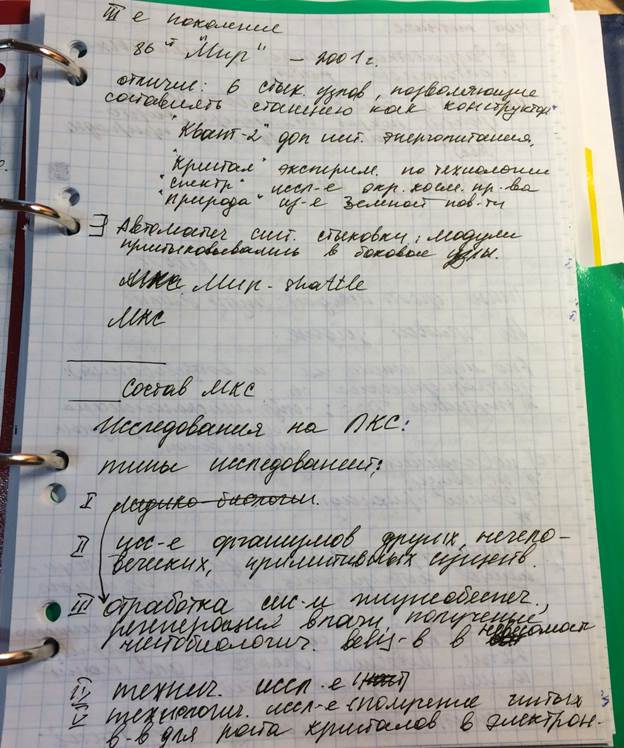 III е поколение
86 г "Мир" – 2001 г.
отличие: 6 стык. узлов, позволяющие
составлять станцию как конструктор
"Квант-2" доп ист. энергопитания,
"Кристал" эксперим. по технологии
"спектр" иссл-е окр. косм. пр-ва
"природа" из-е Земной пов-ти
Автоматич сист. стыковки; модули
пристыковывались в боковые узлы.
Мир - shattle
МКС
Состав МКС
Исследования на ПКС:
типы исследований:
I медико-биологич.
II исс-е организмов других, нечело-
веческих, примитивных существ.
III отработка сис-м жизнеобеспеч,
регенерация влаги, получение
чистобиологич. вещ-в в невесомост
IV технич. иссл-е
V технологич. иссл-е (получение чистых
в-в для роста кристалов в электрон-